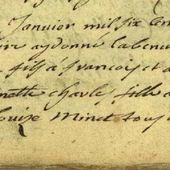 Janvier mil six cen
aydonné la bene
fils à francois et a
nette charle, fille a
ouise Minet tous